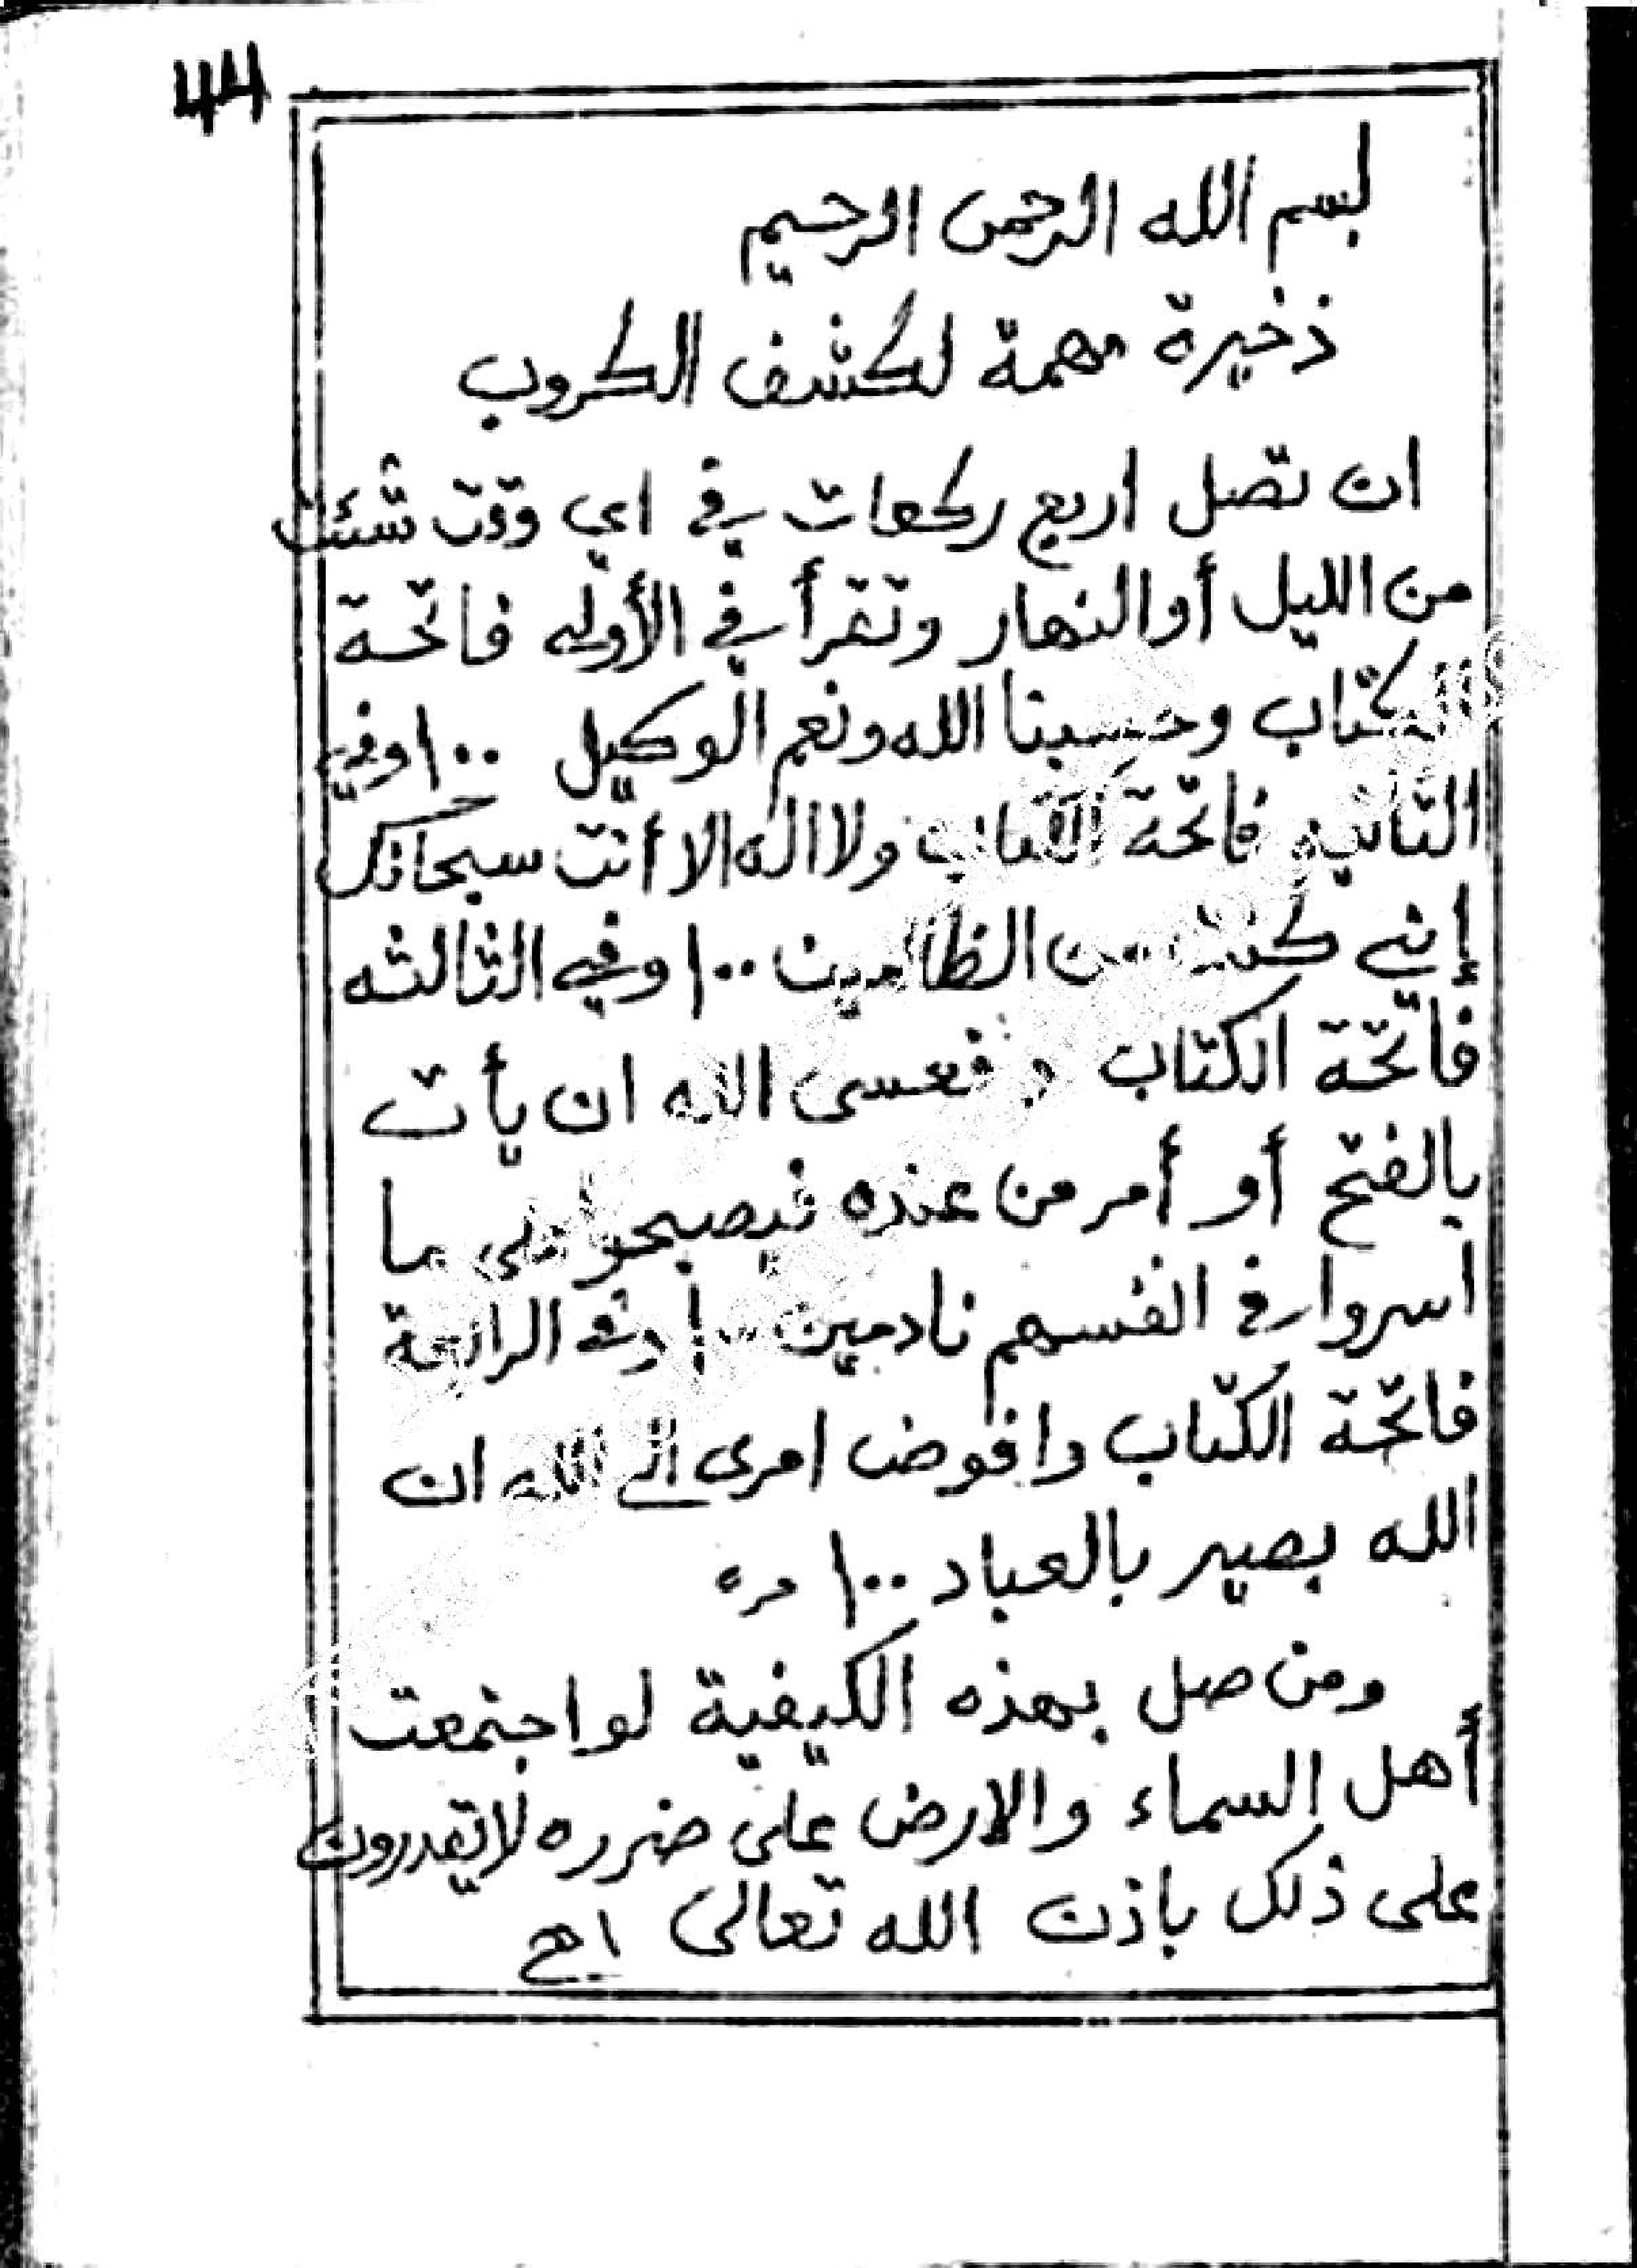 44
بسم الله الرحمن الرحيم
ذخيرة مهمة لكشف الكروب
ان تصل اربع ركعات في اي وقت شئت
من الليل أو النهار وتقرأ في الأولى فاتحة
الكتاب وحسبنا الله ونعم الوكيل ١٠٠ وفي
الثانيه فاتحة الكتاب ولا اله الا أنت سبحانك
إني كنت من الظالمين ١٠٠ وفي الثالثه
فاتحة الكتاب و فعسى الله ان يأت
بالفتح أو أمر من عنده فيصبحوا على ما
اسروا في انفسهم نادمين ١٠٠ وفي الرابعة
فاتحة الكتاب وافوض امرى الى الله ان
الله بصير بالعباد ١٠٠ مره
ومن صل بهذه الكيفية لو اجتمعت
أهل السماء والارض على ضرره لا يقدرون
على ذلك باذن الله تعالى اهـ